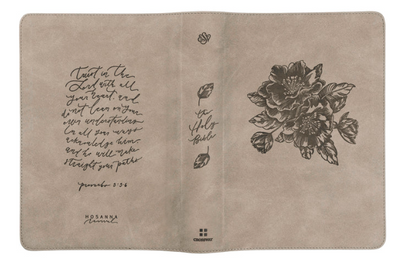 Trust in the
Lord with all
your heart, and
do not lean on your
own understanding.
In all your ways
acknowledge him,
and he will make
straight your paths.
Proverbs 3:5-6
HOSANNA
Revival
the
Holy
Bible
CROSSWAY